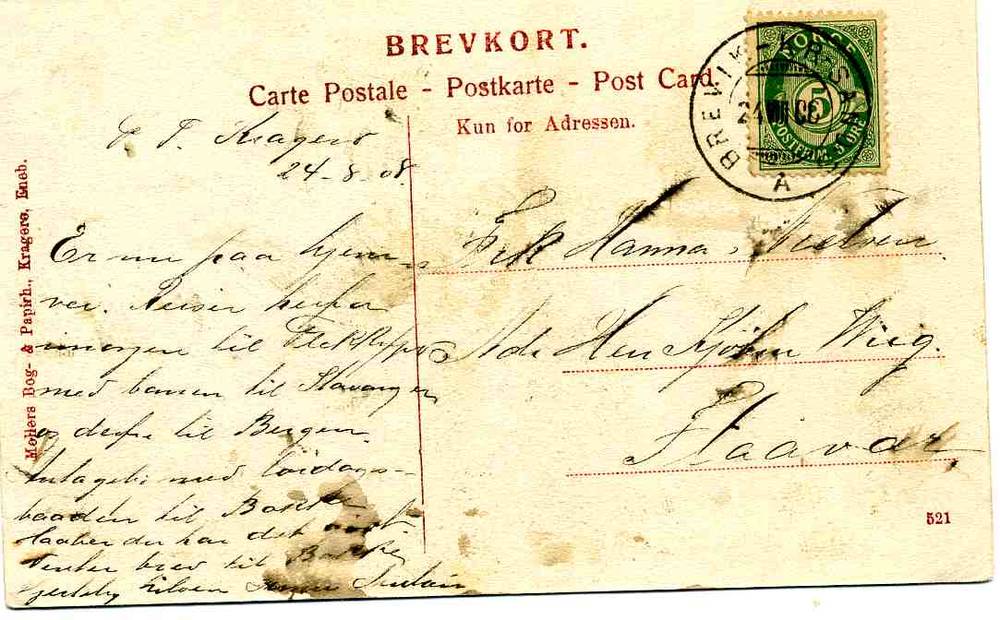 BREVKORT.
Carte Postale - Postkarte - Post Card.
Kun for Adressen.
NORGE
5
POSTFRIM. 5 ØRE
BREVIK - KR.SAND
24 VIII 08
A
Møllers Bog- & Papirh., Kragerø, Eneb.
P. T. Kragerø
24-8-08.
Er nu paa hjem-
vei. Reiser herfra
imorgen til Flekkefj
med banen til Stavanger
og derfra til Bergen.
med lørdags-
baaden til
haaber du har det godt
brev til
hilsen
Frk Hanna Nielsen
Adr Herr Wiig.
Flaavær
521